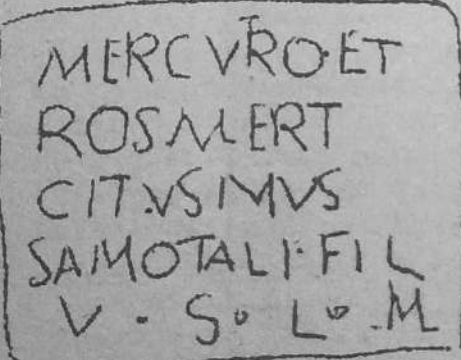 MERCVRO·ET
ROSMERT
CITVSMVS
SAMOTALI·FIL
V·S·L·M